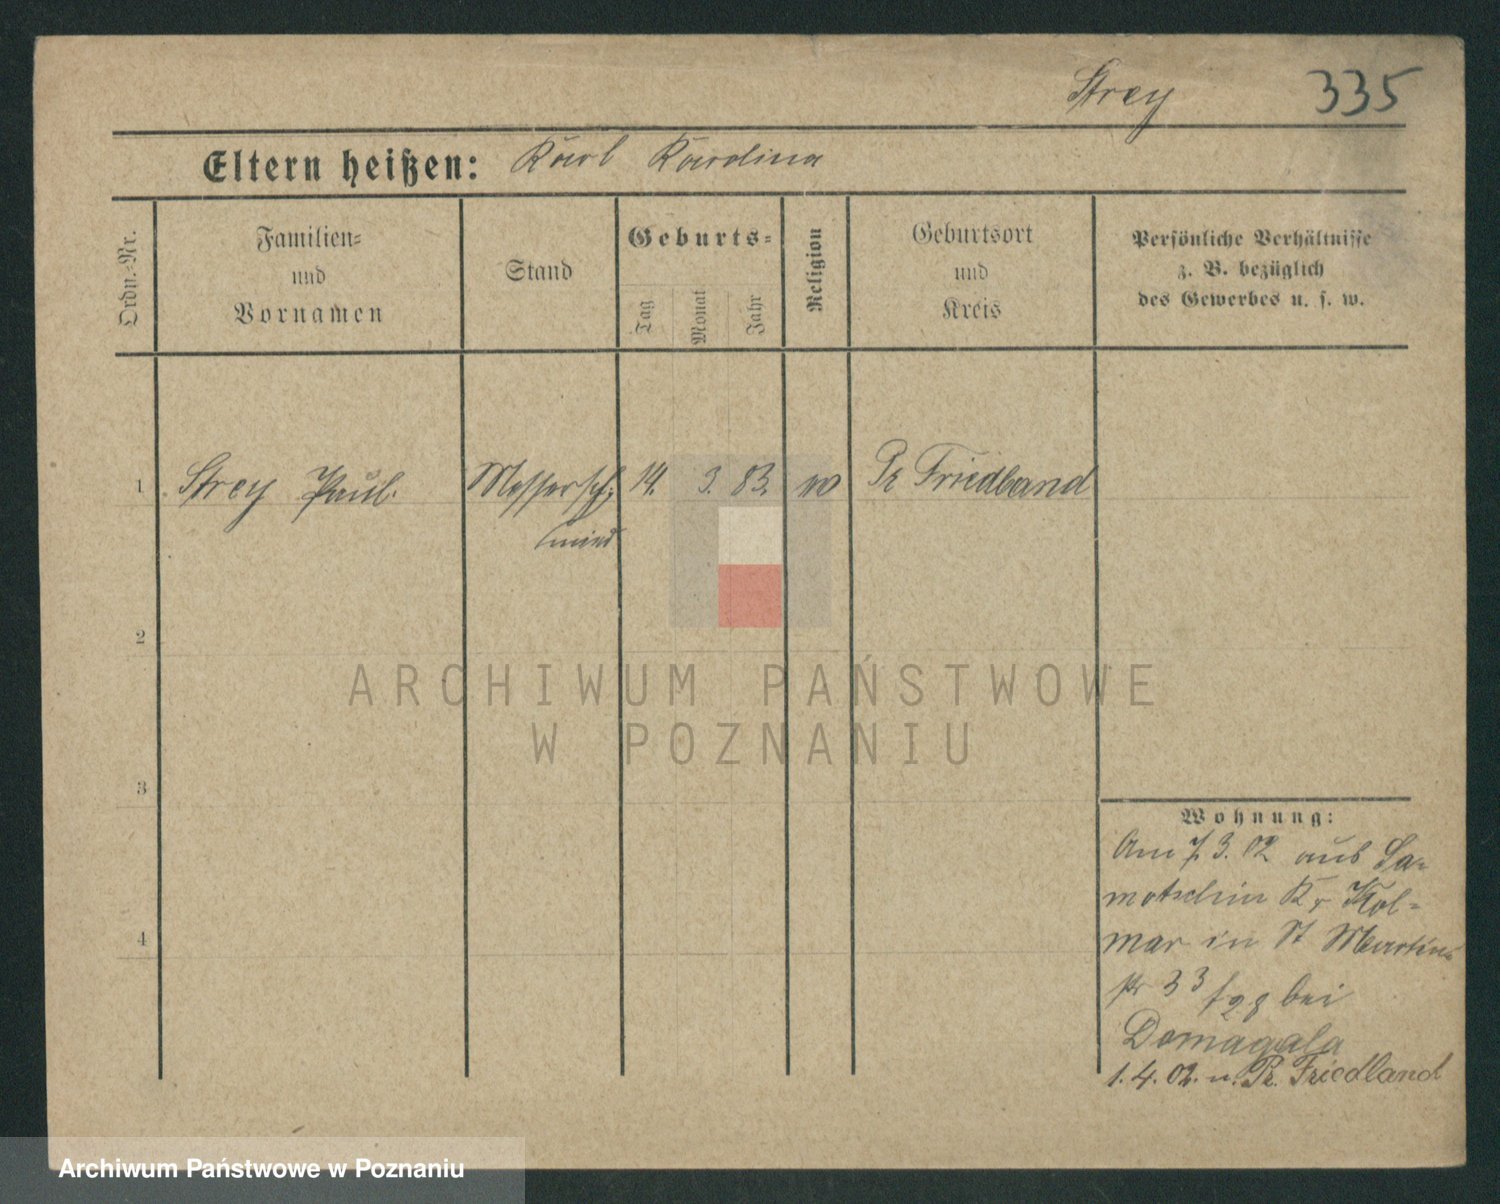 Strey 335
Eltern heißen: Karl Karolina
Ordn.-Nr.
Familien-
und
Vornamen
Stand
Geburts-
Tag
Monat
Jahr
Religion
Geburtsort
und
Kreis
Persönliche Verhältnisse
z. B. bezüglich
des Gewerbes u. s. w.
1 Strey Paul. Messersch- 14. 3. 83. Pr Friedland
mied
2
3
4
Wohnung:
Am 7. 3. 02 aus Sa-
motschin Kr Kol-
mar in St Martin-
str 33 bei
Domagala
1. 4. 02. n. Pr. Friedland
ARCHIWUM PAŃSTWOWE
W POZNANIU
Archiwum Państwowe w Poznaniu